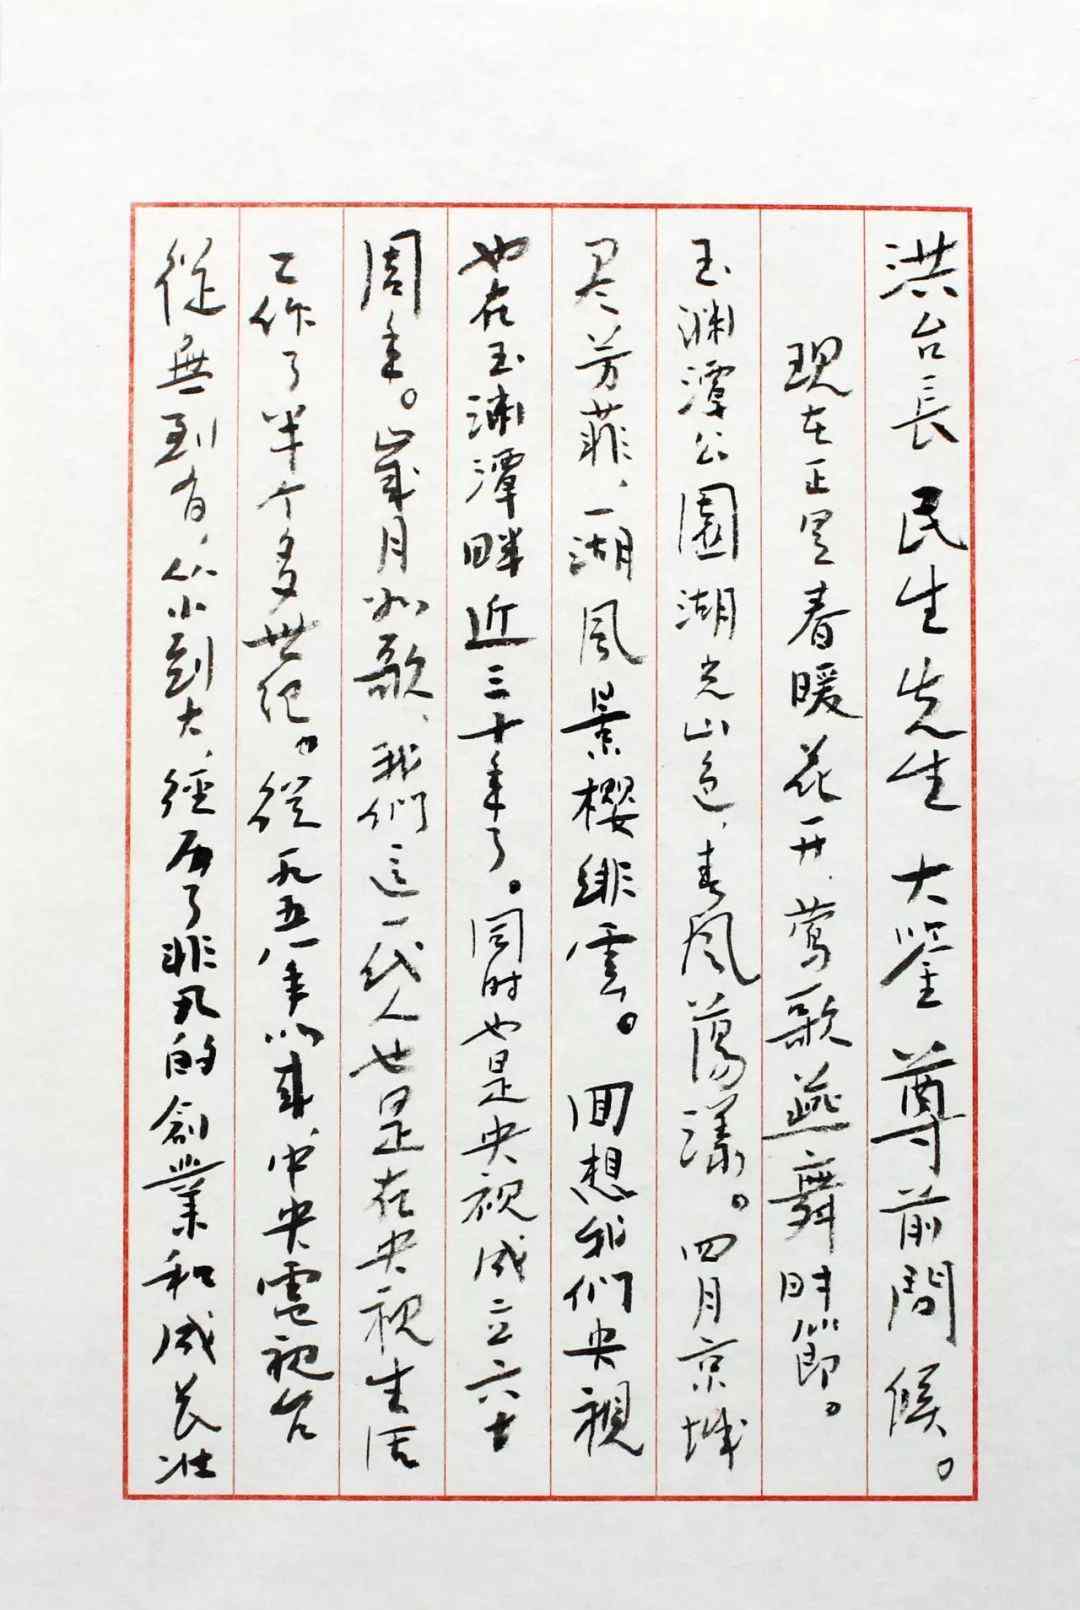 洪台長民生先生大鑒尊前問候。
現在正是春暖花开、莺歌燕舞时節。
玉渊潭公園湖光山色、春风蕩漾。四月京城
尽芳菲、一湖风景樱绯雲。回想我们央視
也在玉渊潭畔近三十年了。同时也是央视成立六十
周年。歲月如歌、我們這一代人也是在央视生活
工作了半个多世纪。從一九五八年以来、中央電视台
從無到有、从小到大、經历了非凡的創業和成长壮